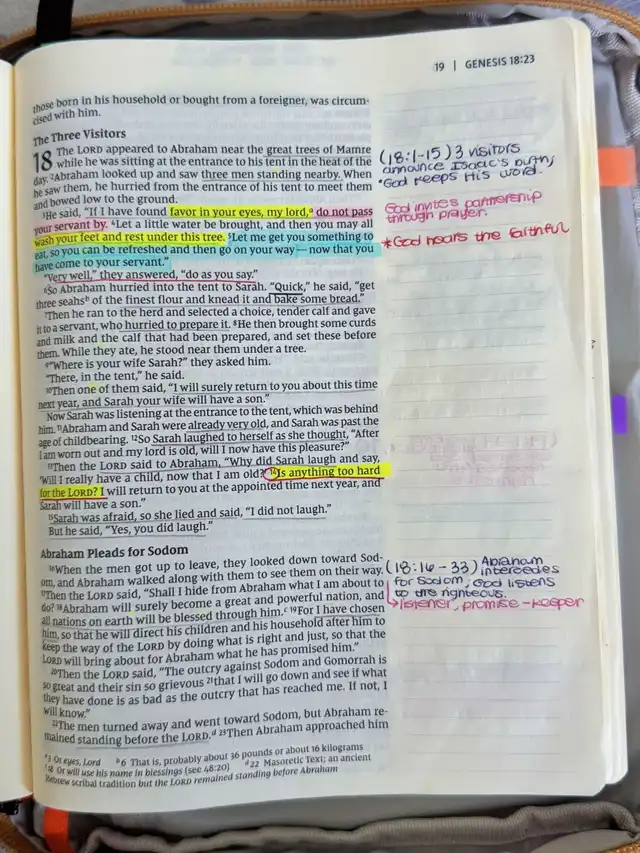 19 | GENESIS 18:23
those born in his household or bought from a foreigner, was circum-
cised with him.
The Three Visitors
18 The LORD appeared to Abraham near the great trees of Mamre
while he was sitting at the entrance to his tent in the heat of the
day. 2Abraham looked up and saw three men standing nearby. When
he saw them, he hurried from the entrance of his tent to meet them
and bowed low to the ground.
3He said, “If I have found favor in your eyes, my lord,a do not pass
your servant by. 4Let a little water be brought, and then you may all
wash your feet and rest under this tree. 5Let me get you something to
eat, so you can be refreshed and then go on your way—now that you
have come to your servant.”
“Very well,” they answered, “do as you say.”
6So Abraham hurried into the tent to Sarah. “Quick,” he said, “get
three seahsb of the finest flour and knead it and bake some bread.”
7Then he ran to the herd and selected a choice, tender calf and gave
it to a servant, who hurried to prepare it. 8He then brought some curds
and milk and the calf that had been prepared, and set these before
them. While they ate, he stood near them under a tree.
9“Where is your wife Sarah?” they asked him.
“There, in the tent,” he said.
10Then one of them said, “I will surely return to you about this time
next year, and Sarah your wife will have a son.”
Now Sarah was listening at the entrance to the tent, which was behind
him. 11Abraham and Sarah were already very old, and Sarah was past the
age of childbearing. 12So Sarah laughed to herself as she thought, “After
I am worn out and my lord is old, will I now have this pleasure?”
13Then the LORD said to Abraham, “Why did Sarah laugh and say,
‘Will I really have a child, now that I am old?’ 14Is anything too hard
for the LORD? I will return to you at the appointed time next year, and
Sarah will have a son.”
15Sarah was afraid, so she lied and said, “I did not laugh.”
But he said, “Yes, you did laugh.”
Abraham Pleads for Sodom
16When the men got up to leave, they looked down toward Sod-
om, and Abraham walked along with them to see them on their way.
17Then the LORD said, “Shall I hide from Abraham what I am about to
do? 18Abraham will surely become a great and powerful nation, and
all nations on earth will be blessed through him.c 19For I have chosen
him, so that he will direct his children and his household after him to
keep the way of the LORD by doing what is right and just, so that the
LORD will bring about for Abraham what he has promised him.”
20Then the LORD said, “The outcry against Sodom and Gomorrah is
so great and their sin so grievous 21that I will go down and see if what
they have done is as bad as the outcry that has reached me. If not, I
will know.”
22The men turned away and went toward Sodom, but Abraham re-
mained standing before the LORD.d 23Then Abraham approached him
a 3 Or eyes, Lord b 6 That is, probably about 36 pounds or about 16 kilograms
c 18 Or will use his name in blessings (see 48:20) d 22 Masoretic Text; an ancient
Hebrew scribal tradition but the LORD remained standing before Abraham
(18:1-15) 3 visitors
announce Isaac's birth;
*God keeps His word.
God invites partnership
through prayer.
*God hears the faithful
(18:16-33) Abraham
intercedes
for Sodom, God listens
to the righteous.
listener, promise-keeper